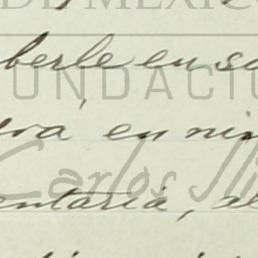 DE MÉXICO
berle en sa
FUNDACIÓ
era, en nin
Carlos Sli
entaria, al